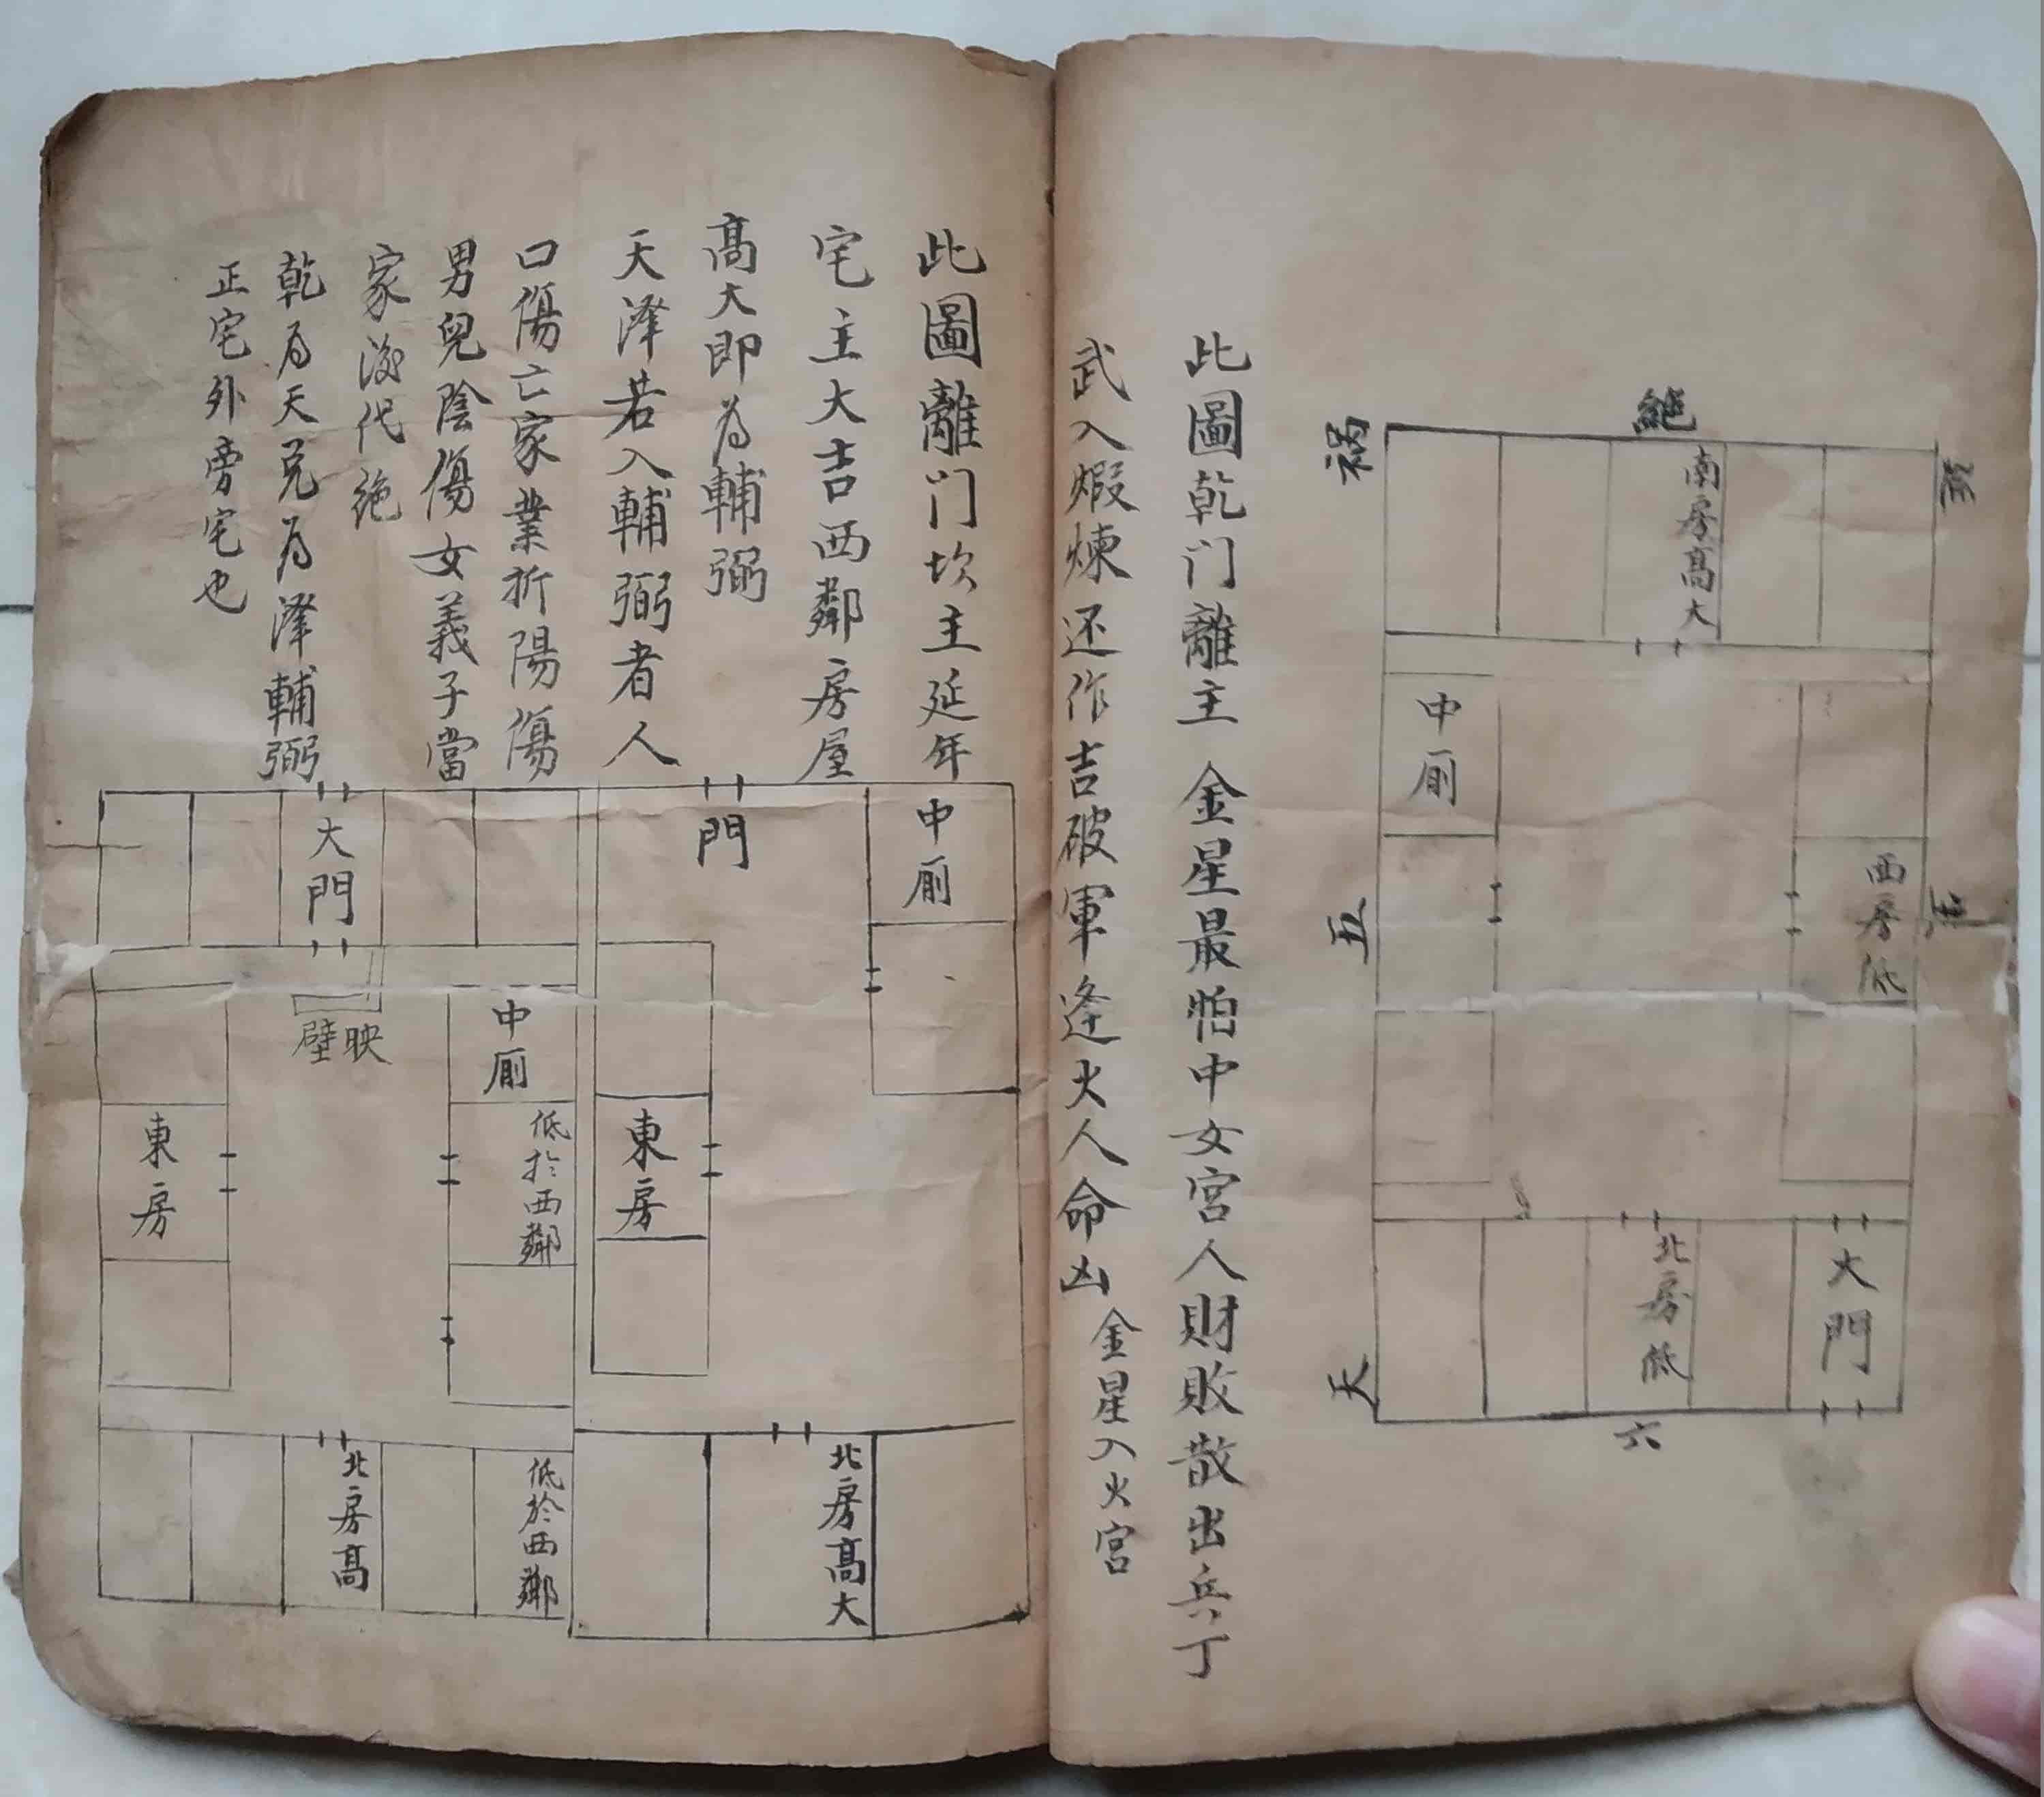 絶
禍
南房高大
中厠
五
西房低
北房低
大門
天
六
此圖乾门離主 金星最怕中女宮人財敗散出兵丁
武入煆煉还作吉破軍逢火人命凶 金星入火宮
此圖離门坎主延年
宅主大吉西鄰房屋
高大即為輔弼
天澤若入輔弼者人
口傷亡家業折陽傷
男兒陰傷女義子當
家後代絶
乾為天兌為澤輔弼
正宅外旁宅也
中厠
門
東房
北房高大
大門
映壁
中厠
低於西鄰
東房
低於西鄰
北房高